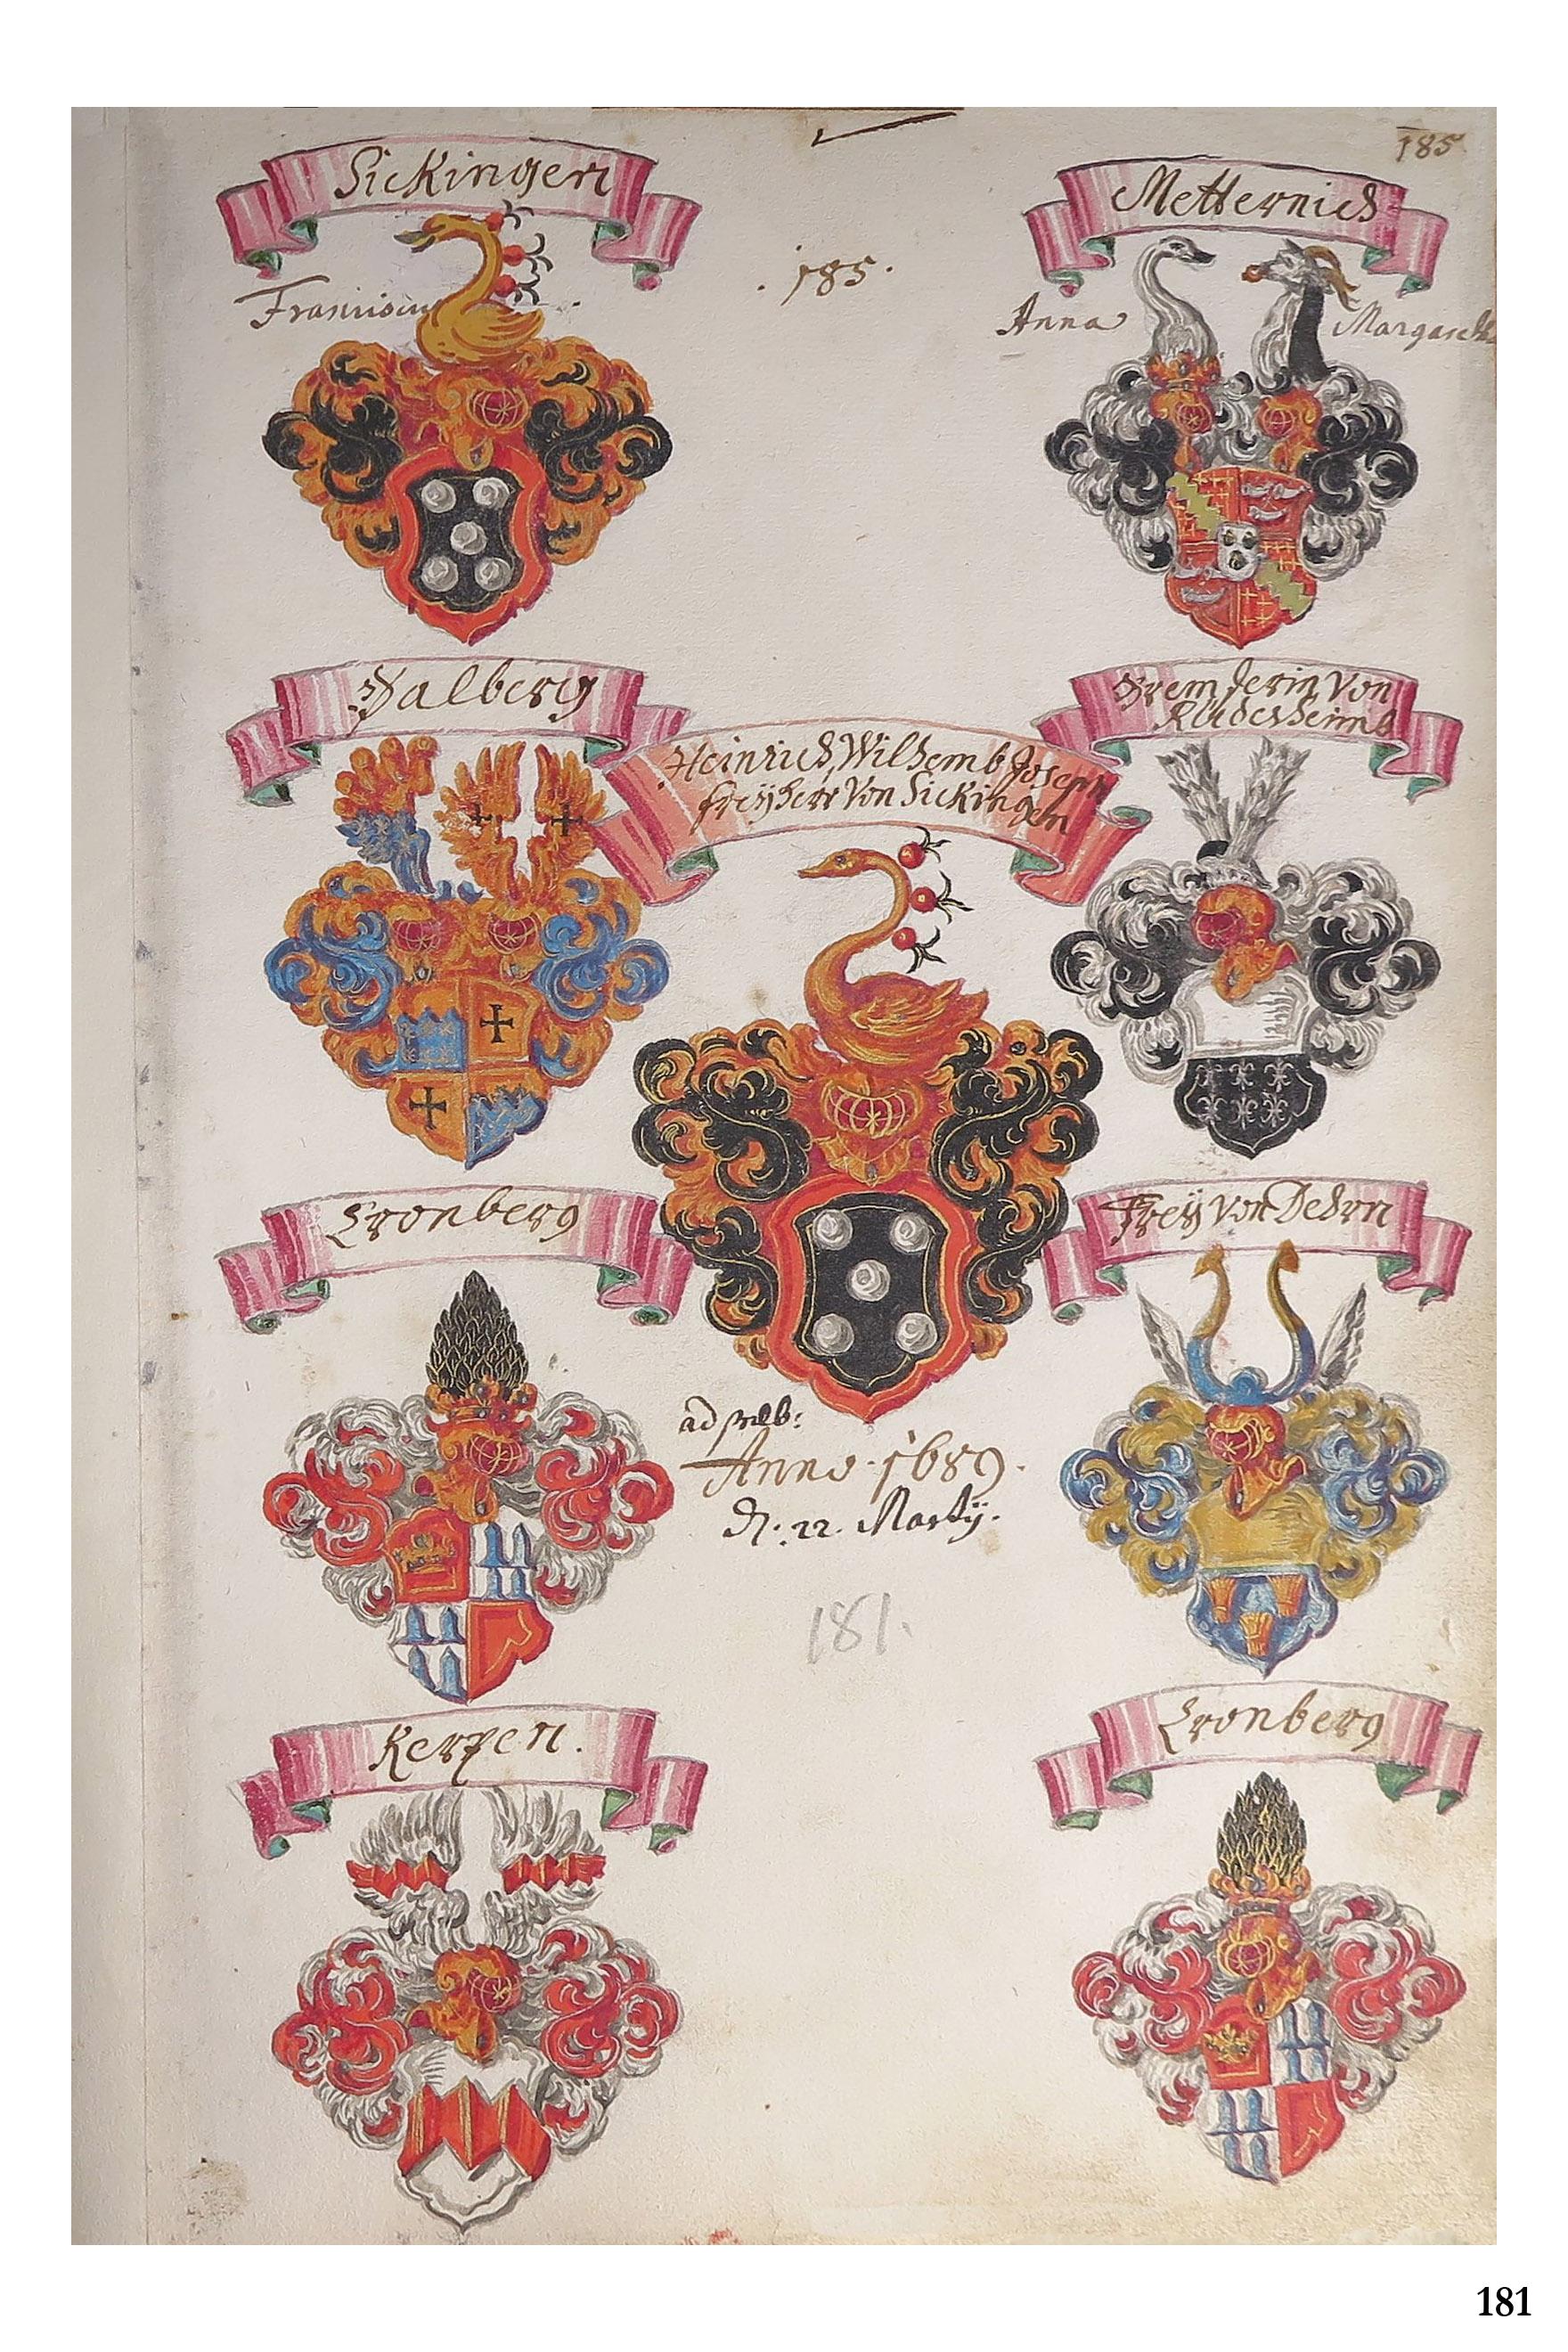 185
Sickingen
Metternich
Franciscus
. 185.
Anna
Margaretha
Dalberg
Bremserin Von
Rüdesheimb
Heinrich Wilhemb Joseph
freÿherr Von Sickingen
Cronberg
Freÿ Von Dehrn
Anno 1689.
d. 22. Martÿ.
181.
Kerpen.
Cronberg
181